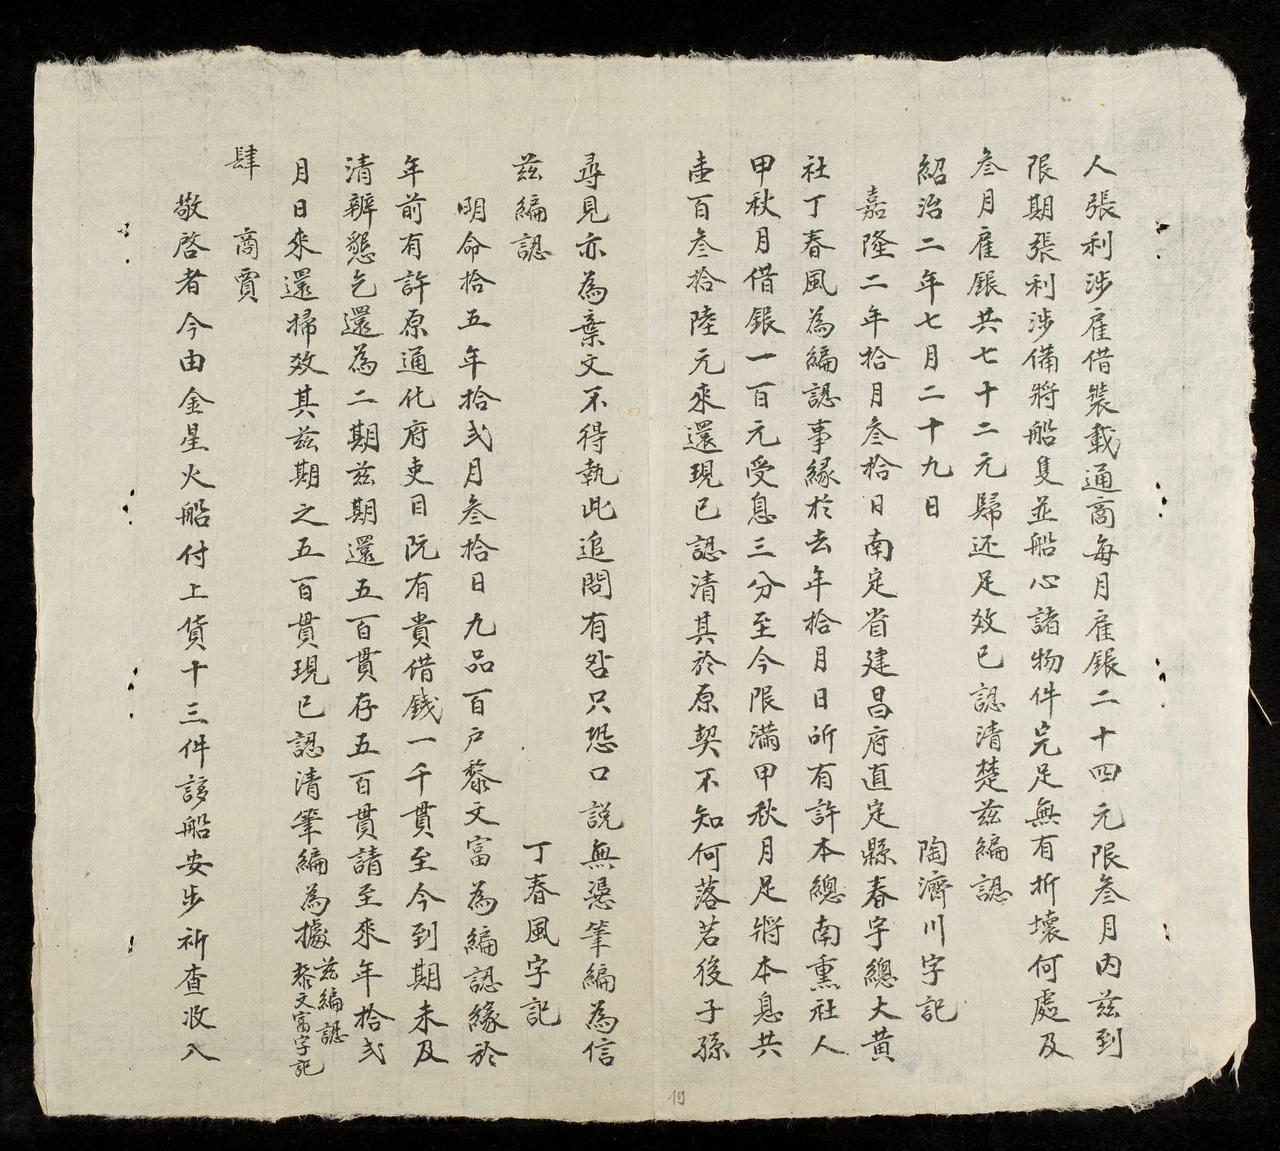 人張利涉雇借裝載通商每月雇銀二十四元限叁月內茲到
限期張利涉備將船隻並船心諸物件完足無有折壞何處及
叁月雇銀共七十二元歸还足效已認清楚茲編認
紹治二年七月二十九日 陶濟川字記
嘉隆二年拾月叁拾日南定省建昌府直定縣春字總大黄
社丁春風為編認事緣於去年拾月日所有許本總南熏社人
甲秋月借銀一百元受息三分至今限滿甲秋月足將本息共
壶百叁拾陸元來還現已認清其於原契不知何落若後子孫
尋見亦為棄文不得執此追問有咎只恐口說無憑筆編為信
茲編認 丁春風字記
明命拾五年拾弍月叁拾日九品百户黎文富為編認緣於
年前有許原通化府吏目阮有貴借錢一千貫至今到期未及
清辦懇乞還為二期茲期還五百貫存五百貫請至來年拾弍
月日來還掃效其茲期之五百貫現已認清筆編為據 茲編認
黎文富字記
肆 商賈
敬啓者今由金星火船付上貨十三件該船安步祈查收入
19